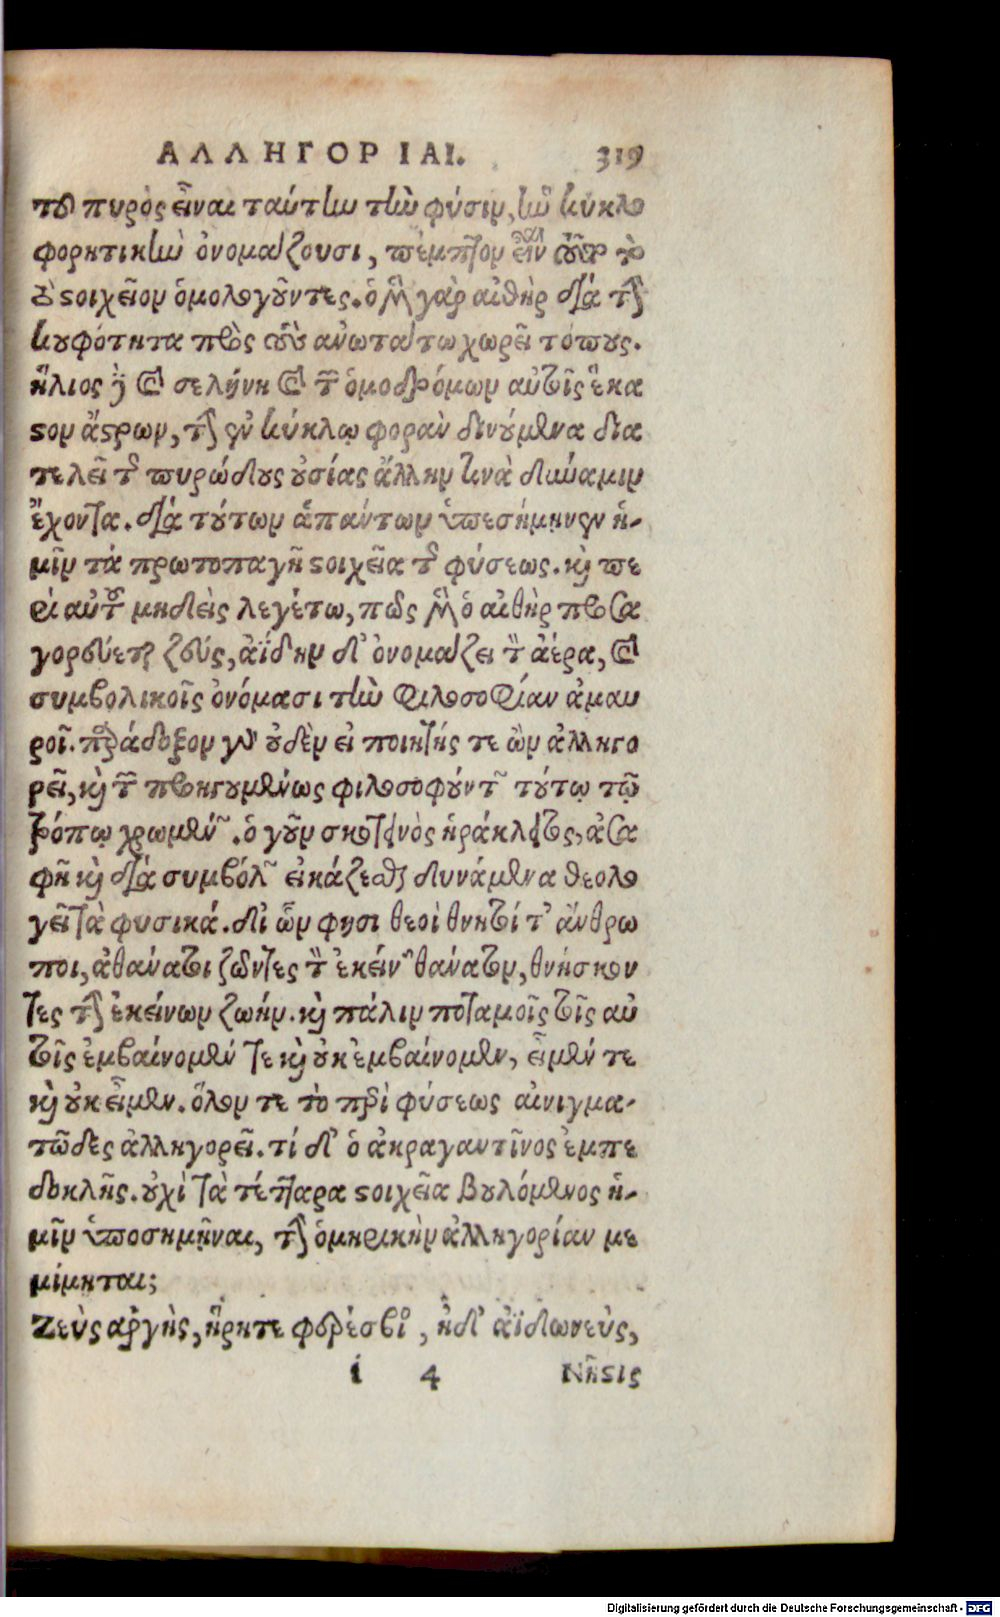 ΑΛΛΗΓΟΡΙΑΙ. 319
τοῦ πυρὸς εἶναι ταύτην τὴν φύσιν, ἣν κύκλο
φορητικὴν ὀνομάζουσι, πέμπτον εἶναι τοῦτο
στοιχεῖον ὁμολογοῦντες. ὁ μὲν γὰρ αἰθὴρ διὰ τὴν
κουφότητα πρὸς τοὺς ἀνωτάτω χωρεῖ τόπους.
ἥλιος δὲ καὶ σελήνη καὶ τῶν ὁμοδρόμων αὐτοῖς ἕκα
στον ἄστρων, τὴν ἐν κύκλῳ φορὰν δινούμενα δια
τελεῖ τῆς πυρώδους οὐσίας ἄλλην τινὰ δύναμιν
ἔχοντα. διὰ τούτων ἁπάντων ὑπεσήμηνεν ἡ-
μῖν τὰ πρωτοπαγῆ στοιχεῖα τῆς φύσεως. καὶ πε
ρὶ αὐτοῦ μηδεὶς λεγέτω, πῶς μὲν ὁ αἰθὴρ προσα
γορεύεται ζεύς, ἀΐδην δ' ὀνομάζει τὸν ἀέρα, καὶ
συμβολικοῖς ὀνόμασι τὴν φιλοσοφίαν ἀμαυ
ροῖ. παράδοξον γὰρ οὐδὲν εἰ ποιητής τε ὢν ἀλληγο
ρεῖ, καὶ τῶν προηγουμένως φιλοσοφούντων τούτῳ τῷ
τρόπῳ χρωμένων. ὁ γοῦν σκοτεινὸς ἡράκλειτος, ἀσα
φῆ καὶ διὰ συμβόλων εἰκάζεσθαι δυνάμενα θεολο
γεῖ τὰ φυσικά. δι' ὧν φησι θεοὶ θνητοί τ' ἄνθρω
ποι, ἀθάνατοι ζῶντες τὸν ἐκείνων θάνατον, θνήσκον
τες τὴν ἐκείνων ζωήν. καὶ πάλιν ποταμοῖς τοῖς αὐ
τοῖς ἐμβαίνομέν τε καὶ οὐκ ἐμβαίνομεν, εἶμέν τε
καὶ οὐκ εἶμεν. ὅλον τε τὸ περὶ φύσεως αἰνιγμα-
τῶδες ἀλληγορεῖ. τί δ' ὁ ἀκραγαντῖνος ἐμπε
δοκλῆς. οὐχὶ τὰ τέτταρα στοιχεῖα βουλόμενος ἡ-
μῖν ὑποσημῆναι, τὴν ὁμηρικὴν ἀλληγορίαν με
μίμηται;
Ζεὺς ἀργὴς, ἥρητε φερέσβιος, ἠδ' ἀϊδωνεὺς,
i 4 Νῆστις
Digitalisierung gefördert durch die Deutsche Forschungsgemeinschaft - DFG